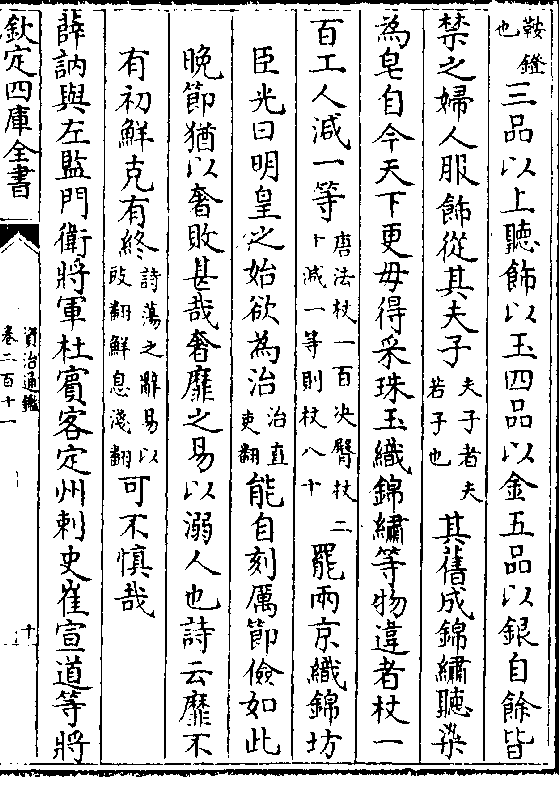 鞍鐙也三品以上聽飾以玉四品以金五品以銀自餘皆
禁之婦人服飾從其夫子夫子者夫若子也其舊成錦繡聽染
為皂自今天下更毋得采珠玉織錦繡等物違者杖一
百工人減一等唐法杖一百決臀杖二十減一等則杖八十罷兩京織錦坊
臣光曰明皇之始欲為治治直吏翻能自刻厲節儉如此
晚節猶以奢敗甚哉奢靡之易以溺人也詩云靡不
有初鮮克有終詩蕩之辭易以豉翻鮮息淺翻可不慎哉
薛訥與左監門衛將軍杜賓客定州刺史崔宣道等將
欽定四庫全書
資治通鑑
卷二百十一
十